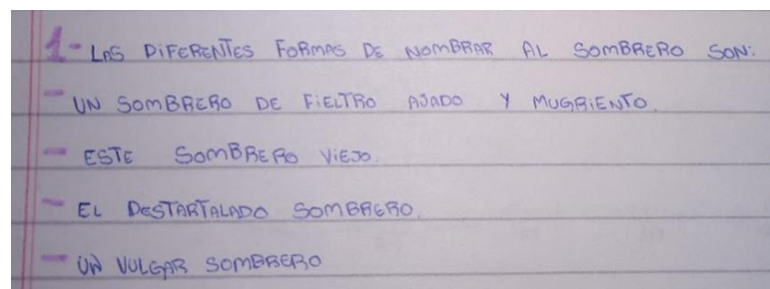 1- LAS DIFERENTES FORMAS DE NOMBRAR AL SOMBRERO SON:
- UN SOMBRERO DE FIELTRO AJADO Y MUGRIENTO.
- ESTE SOMBRERO VIEJO.
- EL DESTARTALADO SOMBRERO.
- UN VULGAR SOMBRERO